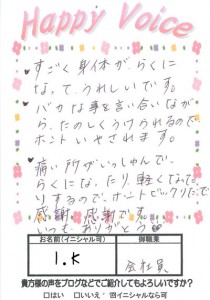 Happy Voice
すごく身体が、らくに
なって、うれしいです。
バカな事を言い合いなが
ら、たのしくうけられるので
ホントいやされます。
痛い所がいっしゅんで、
らくになったり、軽くなった
りするので、ホントビックリだし
感謝感謝です
いつもありがとう♥
お名前(イニシャル可) 御職業
I.K 会社員
貴方様の声をブログなどでご紹介してもよろしいですか?
□はい □いいえ □イニシャルなら可